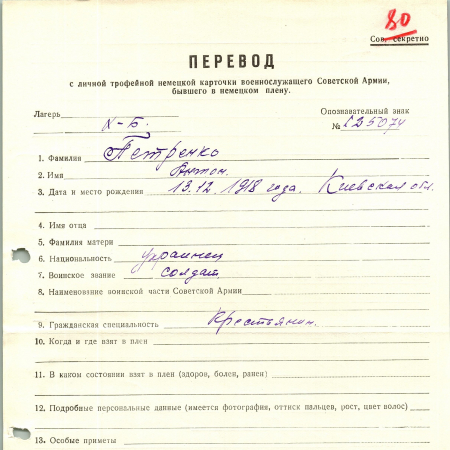 80
Сов. секретно
ПЕРЕВОД
с личной трофейной немецкой карточки военнослужащего Советской Армии,
бывшего в немецком плену.
Лагерь X-Б. Опознавательный знак
№ 125074
1. Фамилия Петренко
2. Имя Антон.
3. Дата и место рождения 13.12.1918 года. Киевская обл.
4. Имя отца
5. Фамилия матери
6. Национальность украинец
7. Воинское звание солдат.
8. Наименование воинской части Советской Армии
9. Гражданская специальность Крестьянин.
10. Когда и где взят в плен
11. В каком состоянии взят в плен (здоров, болен, ранен)
12. Подробные персональные данные (имеется фотография, оттиск пальцев, рост, цвет волос)
13. Особые приметы